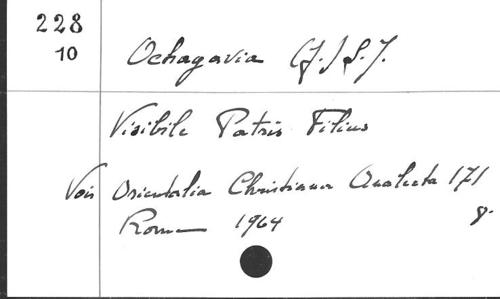 228
10
Ochagavia (J.) S.J.
Visibile Patris Filius
Voir Orientalia Christiana Analecta 171
Roma 1964 8.